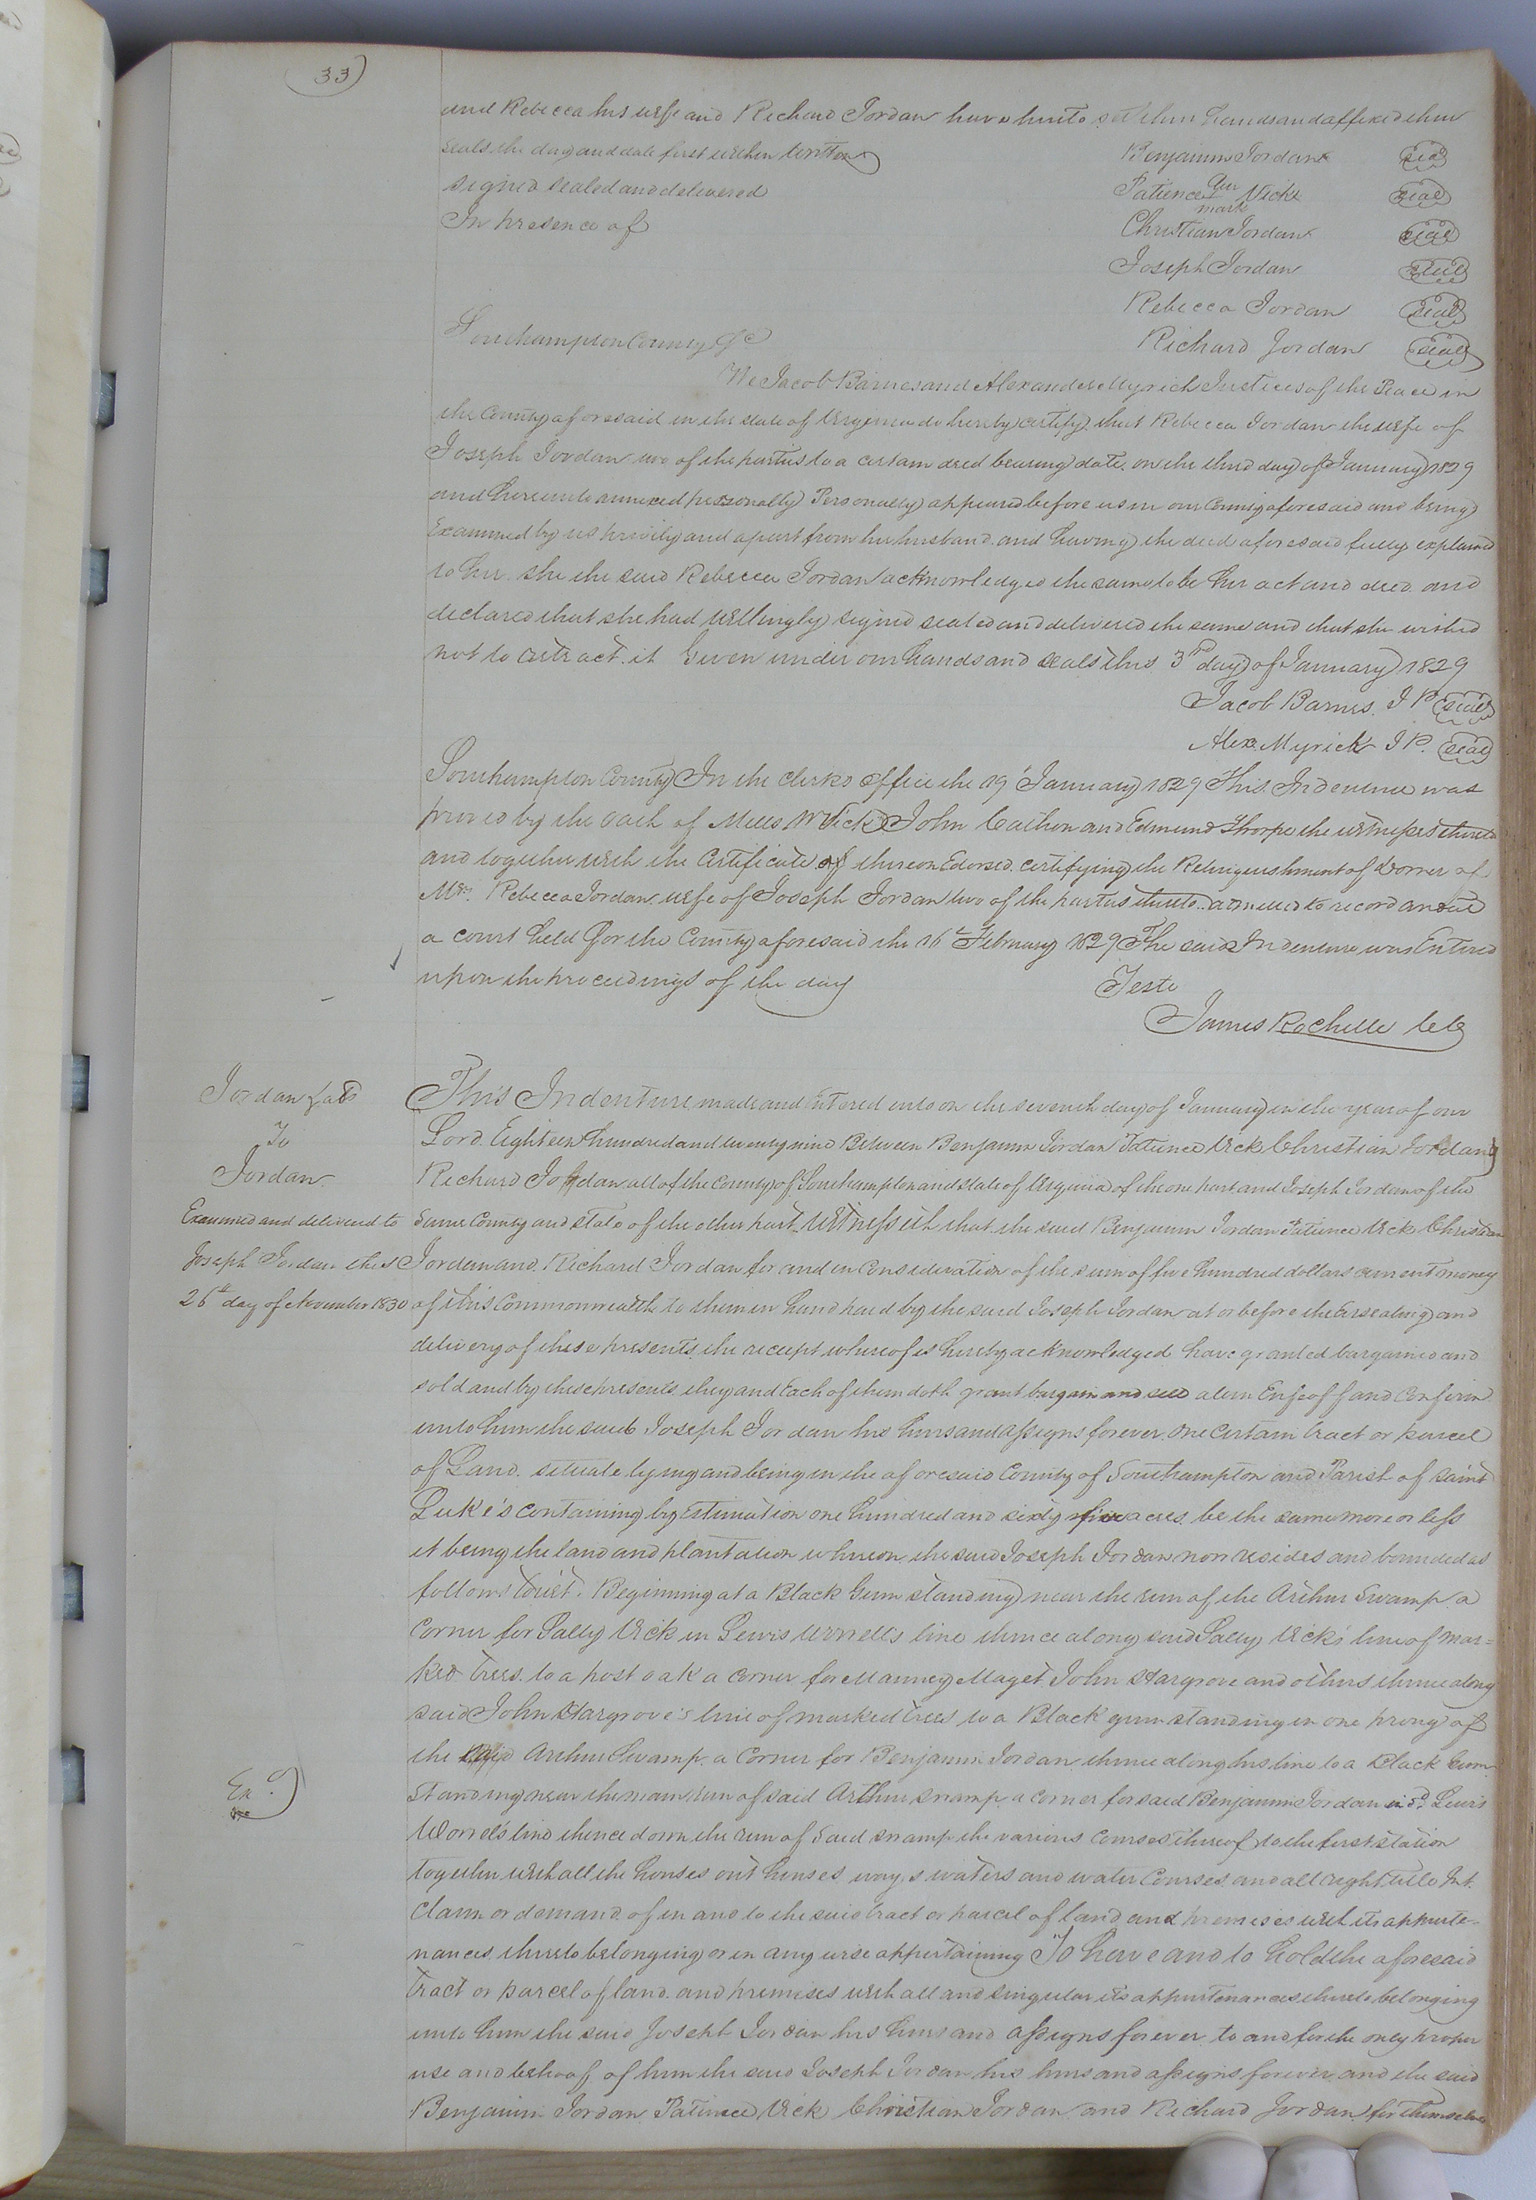 33
and Rebecca his wife and Richard Jordan have hereunto set their hands and affixed their
seals the day and date first within written
Benjamin Jordan seal
signed sealed and delivered
Patience her mark Vick seal
In presence of
Christian Jordan seal
Joseph Jordan seal
Rebecca Jordan seal
Southampton County Sc
Richard Jordan seal
We Jacob Barnes and Alexander Myrick Justices of the Peace in
the County aforesaid in the state of Virginia do hereby certify that Rebecca Jordan the wife of
Joseph Jordan two of the parties to a certain deed bearing date on the third day of January 1829
and hereunto annexed personally Personally appeared before us in our County aforesaid and being
Examined by us privily and apart from her husband and having the deed aforesaid fully explained
to her she the said Rebecca Jordan acknowledged the same to be her act and deed and
declared that she had willingly signed sealed and delivered the same and that she wished
not to retract it Given under our hands and seals this 3rd day of January 1829
Jacob Barnes J P seal
Alex. Myrick J P. seal
Southampton County In the Clerks office the 19 January 1829 This Indenture was
proved by the oath of Mills W Vick John Cathon and Edmund Thorpe the witnesses thereto
and together with the Certificate of thereon Edorsed certifying the Relinquishment of Dower of
Mrs. Rebecca Jordan wife of Joseph Jordan two of the parties thereto admitted to record and at
a court held for the County aforesaid the 16 February 1829 The said Indenture was Entered
upon the proceedings of the day
Teste
James Rochelle CC
Jordan &als
To
Jordan
Examined and delivered to
Joseph Jordan this
26th day of November 1830
This Indenture made and Entered into on the seventh day of January in the year of our
Lord Eighteen hundred and twenty nine Between Benjamin Jordan Patience Vick Christian Jordan &
Richard Jordan all of the County of Southampton and State of Virginia of the one part and Joseph Jordan of the
same County and state of the other part Witnesseth that the said Benjamin Jordan Patience Vick Christian
Jordan and Richard Jordan for and in Consideration of the sum of five hundred dollars current money
of this Commonwealth to them in hand paid by the said Joseph Jordan at or before the Ensealing and
delivery of these presents the receipt whereof is hereby acknowledged have granted bargained and
sold and by these presents they and Each of them doth grant bargain and sell alien Enfeoff and Confirm
unto him the said Joseph Jordan his heirs and assigns forever one certain tract or parcel
of Land situate lying and being in the aforesaid County of Southampton and Parish of saint
Luke's containing by Estimation one hundred and sixty five acres be the same more or less
it being the land and plantation whereon the said Joseph Jordan now resides and bounded as
follows towit. Beginning at a Black Gum standing near the run of the Arthur Swamp a
Corner for Sally Vick in Lewis Worrell's line thence along said Sally Vick's line of mar=
ked trees to a post oak a corner for Manney Maget John Hargrove and others thence along
said John Hargrove's line of marked trees to a Black gum standing in one prong of
the said Arthur Swamp a Corner for Benjamin Jordan thence along his line to a Black Gum
Standing near the main run of said Arthur swamp a corner for said Benjamin Jordan in sd. Lewis
Exd
Worrel's line thence down the run of said swamp the various Courses thereof to the first station
together with all the houses out houses ways waters and water Courses and all right title Int.
Claim or demand of in and to the said tract or parcel of land and premises with its appurte-
nances thereto belonging or in any wise appertaining To have and to hold the aforesaid
tract or parcel of land and premises with all and singular its appurtenances thereto belonging
unto him the said Joseph Jordan his heirs and assigns forever to and for the only proper
use and behoof of him the said Joseph Jordan his heirs and assigns forever and the said
Benjamin Jordan Patience Vick Christian Jordan and Richard Jordan for themselves